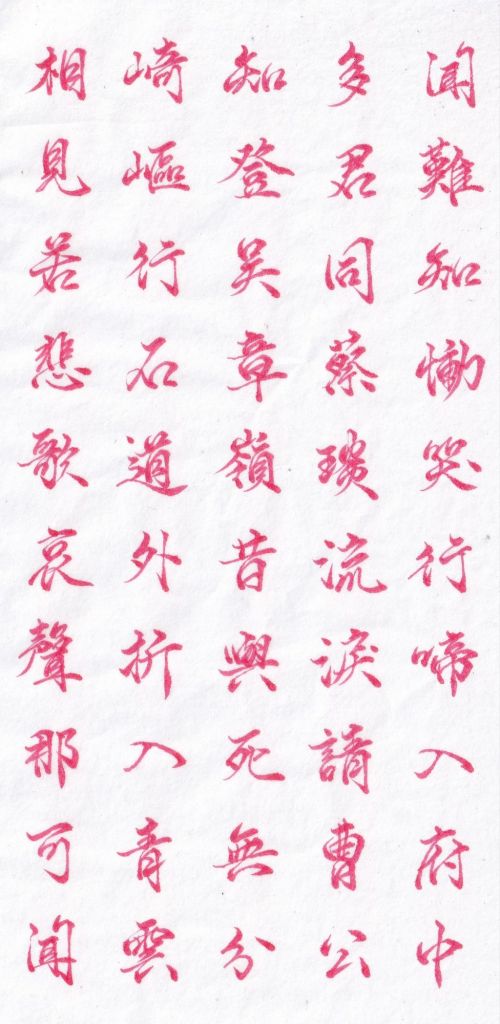 聞難知慟哭行啼入府中
多君同蔡琰流淚請曹公
知登吴章嶺昔與死無分
崎嶇行石道外折入青雲
相見若悲歌哀聲那可聞